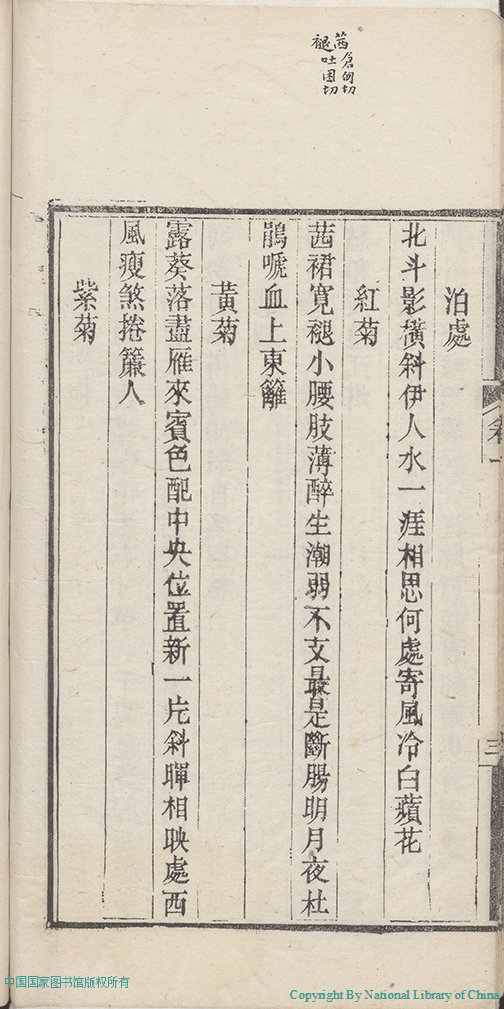 茜倉甸切
褪吐困切
卷一
三
泊處
北斗影橫斜伊人水一涯相思何處寄風冷白蘋花
紅菊
茜裙寬褪小腰肢薄醉生潮弱不支最是斷腸明月夜杜
鵑嗁血上東籬
黃菊
露葵落盡雁來賓色配中央位置新一片斜暉相映處西
風瘦煞捲簾人
紫菊
中国国家图书馆版权所有
Copyright By National Library of China